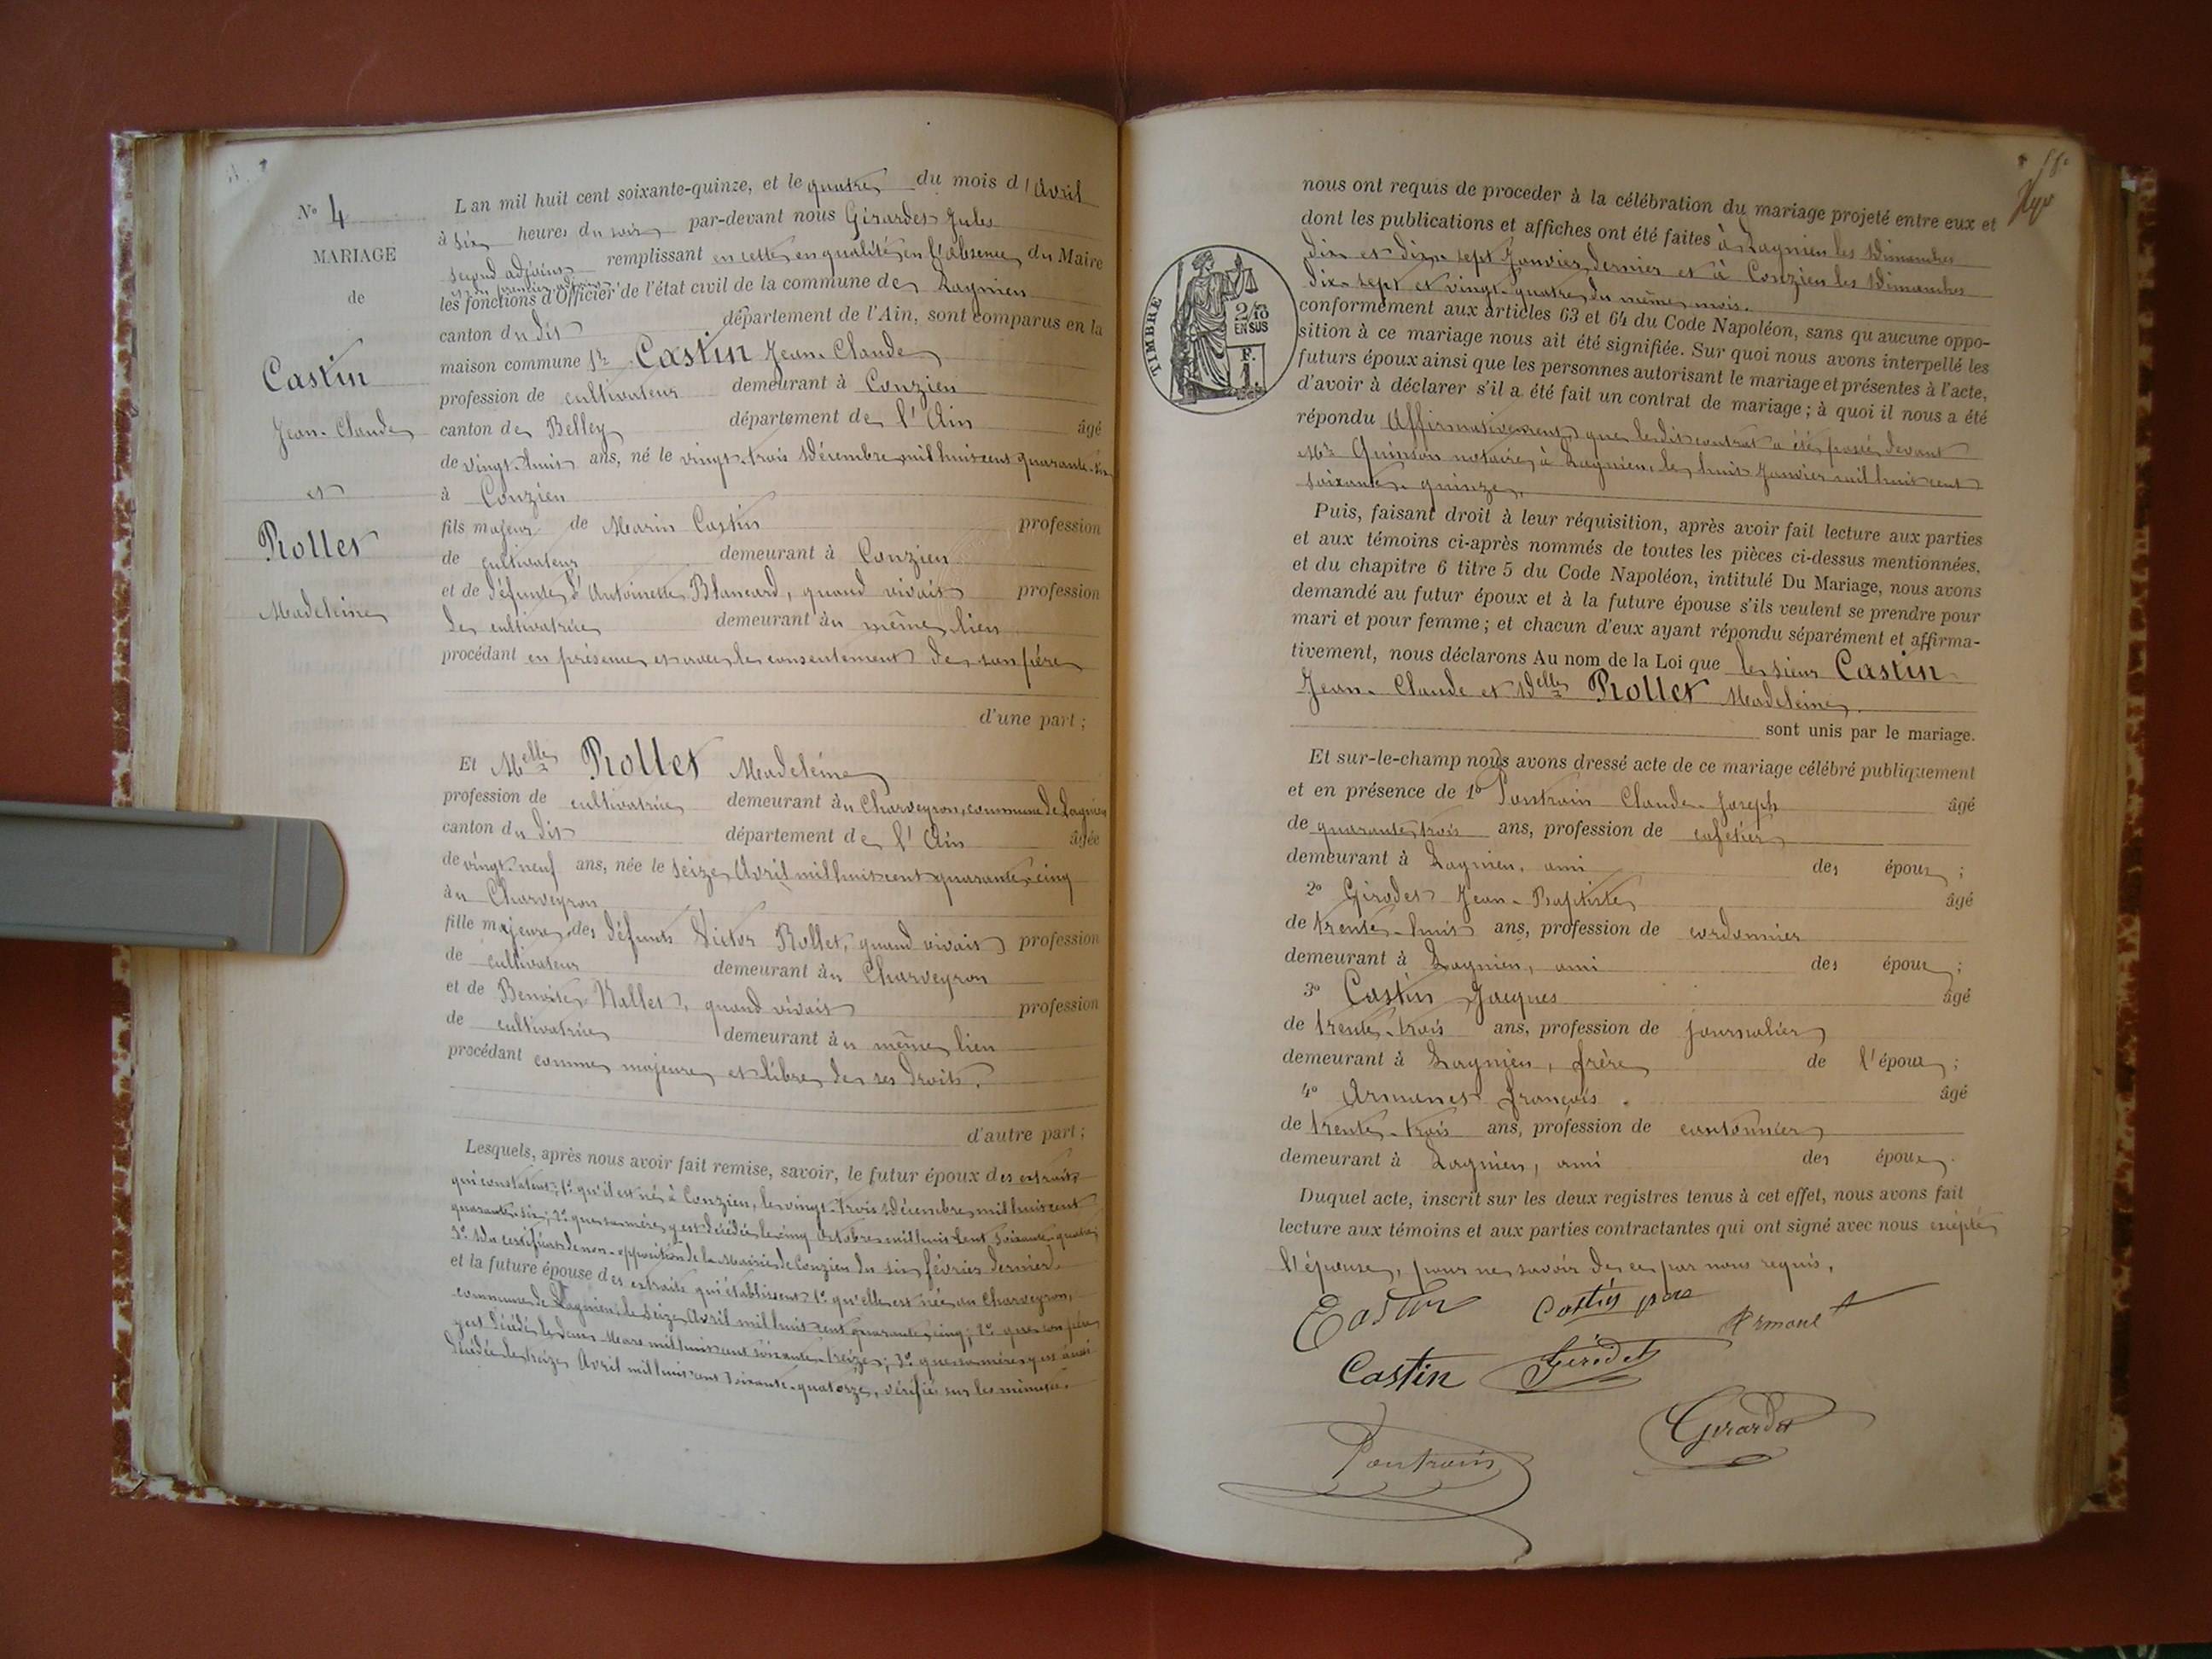 N° 4
MARIAGE
de
Castin
Jean-Claude
et
Rollet
Madeleine
L'an mil huit cent soixante-quinze, et le quatre du mois d'Avril
à six heures du soir par-devant nous Girardet Jules
second adjoint remplissant en cette qualité en l'absence du Maire
et du premier adjoint
les fonctions d'Officier de l'état civil de la commune de Lagnieu
canton du dit département de l'Ain, sont comparus en la
maison commune Castin Jean-Claude
profession de cultivateur demeurant à Conzieu
canton de Belley département de l'Ain âgé
de vingt-huit ans, né le vingt-trois Décembre mil huit cent quarante-six
à Conzieu
fils majeur de Marin Castin profession
de cultivateur demeurant à Conzieu
et de défunte d'Antoinette Blancard, quand vivait profession
de cultivatrice demeurant au même lieu
procédant en présence et avec le consentement de son père
d'une part ;
Et Melle Rollet Madeleine
profession de cultivatrice demeurant au Charveyron, commune de Lagnieu
canton du dit département de l'Ain âgée
de vingt-neuf ans, née le seize Avril mil huit cent quarante-cinq
au Charveyron
fille majeure des défunts Victor Rollet, quand vivait profession
de cultivateur demeurant au Charveyron
et de Benoite Vallet, quand vivait profession
de cultivatrice demeurant au même lieu
procédant comme majeure et libre de ses droits.
d'autre part ;
Lesquels, après nous avoir fait remise, savoir, le futur époux des extraits
qui constatent: 1° qu'il est né à Conzieu, le vingt-trois Décembre mil huit cent
quarante-six; 2° que sa mère y est décédée le cinq Octobre mil huit cent soixante-quatre;
3° Du certificat de non-opposition de la Mairie de Conzieu du six février dernier.
et la future épouse des extraits qui établissent 1° qu'elle est née au Charveyron,
commune de Lagnieu le seize Avril mil huit cent quarante-cinq; 2° que son père
y est décédé le deux Mars mil huit cent soixante-treize; 3° que sa mère y est aussi
décédée le treize Avril mil huit cent soixante-quatorze, vérifiés sur les minutes.
nous ont requis de proceder à la célébration du mariage projeté entre eux et
dont les publications et affiches ont été faites à Lagnieu les Dimanches
dix et dix-sept Janvier dernier et à Conzieu les Dimanches
dix-sept et vingt-quatre du même mois.
conformément aux articles 63 et 64 du Code Napoléon, sans qu'aucune oppo-
sition à ce mariage nous ait été signifiée. Sur quoi nous avons interpellé les
futurs époux ainsi que les personnes autorisant le mariage et présentes à l'acte,
d'avoir à déclarer s'il a été fait un contrat de mariage ; à quoi il nous a été
répondu Affirmativement, que ledit contrat a été passé devant
Me Quinson notaire, à Lagnieu, le huit Janvier mil huit cent
soixante-quinze.
TIMBRE
2/10
EN SUS
F.
1.
Puis, faisant droit à leur réquisition, après avoir fait lecture aux parties
et aux témoins ci-après nommés de toutes les pièces ci-dessus mentionnées,
et du chapitre 6 titre 5 du Code Napoléon, intitulé Du Mariage, nous avons
demandé au futur époux et à la future épouse s'ils veulent se prendre pour
mari et pour femme ; et chacun d'eux ayant répondu séparément et affirma-
tivement, nous déclarons Au nom de la Loi que le sieur Castin
Jean-Claude et Delle Rollet Madeleine
sont unis par le mariage.
Et sur-le-champ nous avons dressé acte de ce mariage célébré publiquement
et en présence de 1° Pontrain Claude-Joseph âgé
de quarante-trois ans, profession de cafetier
demeurant à Lagnieu, ami des époux ;
2° Girodet Jean-Baptiste âgé
de trente-huit ans, profession de cordonnier
demeurant à Lagnieu, ami des époux ;
3° Castin Jacques âgé
de trente-trois ans, profession de journalier
demeurant à Lagnieu, frère de l'époux ;
4° Armanet françois. âgé
de trente-trois ans, profession de cantonnier
demeurant à Lagnieu, ami des époux.
Duquel acte, inscrit sur les deux registres tenus à cet effet, nous avons fait
lecture aux témoins et aux parties contractantes qui ont signé avec nous excepté
l'épouse, pour ne savoir de ce par nous requis.
Castin Castin père Armanet
Castin Girodet
Pontrain Girardet